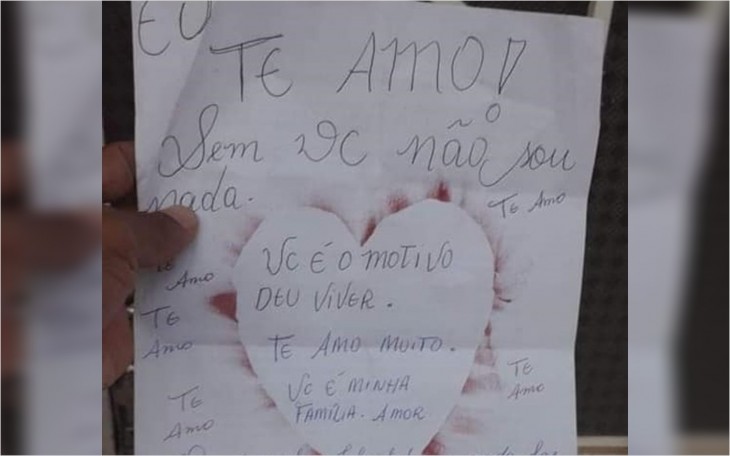 EU
TE AMO!
Sem vc não sou
nada.
TE Amo
VC É O MOTIVO
DEU VIVER.
TE Amo
TE AMO MUITO.
TE Amo
VC É MINHA
FAMÍLIA. AMOR
TE Amo
TE Amo